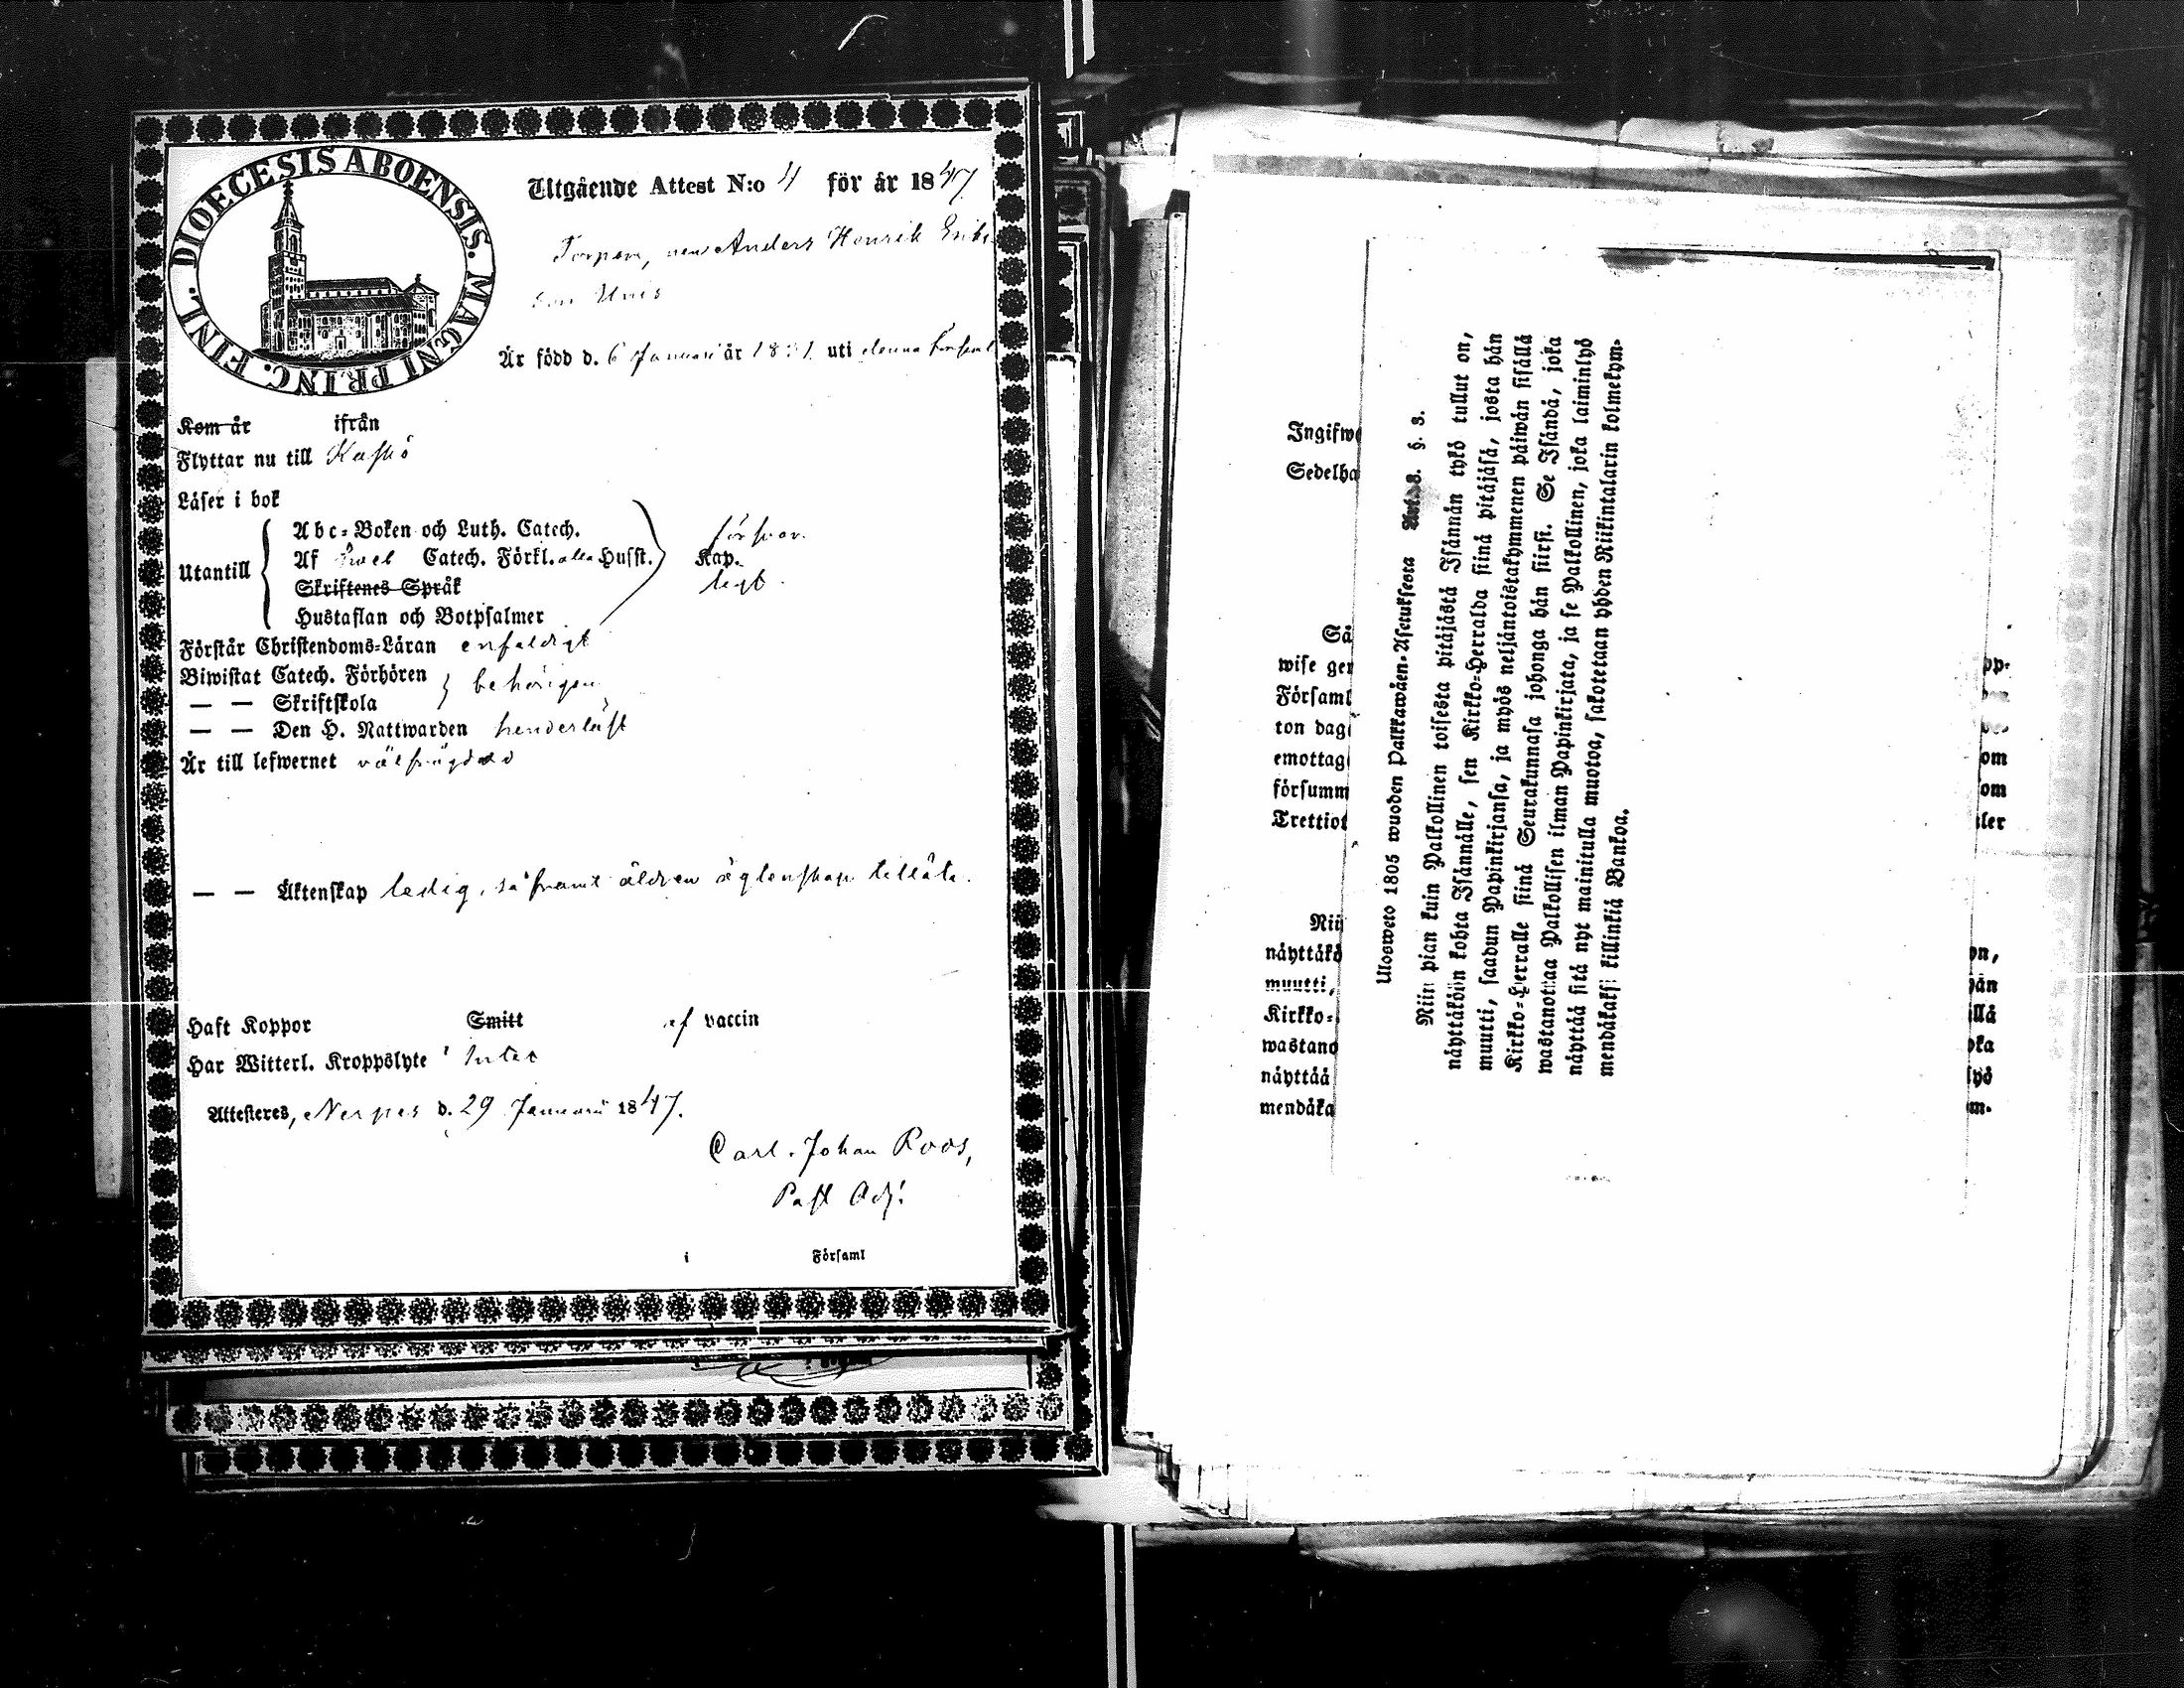 DIOECESIS ABOENSIS. MAGNI PRINC. FINL.
Utgående Attest N:o 4 för år 1847
Anders Henrik Eriks
son
Är född d. 6 Januari år 18 1 uti denna
Kom år ifrån
Flyttar nu till Kaskö
Läser i bok
Abc-Boken och Luth. Catech. försvar.
Utantill Af Catech. Förkl. Husst. Kap.
Skriftenes Språk
Hustaflan och Botpsalmer
Förstår Christendoms-Läran enfaldigt
Biwistat Catech. Förhören behörigen
— — Skriftskola
— — Den H. Nattwarden
Är till lefwernet välfrägdad
— — Äktenskap ledig, så framt äldren tillåta.
Haft Koppor Smitt af vaccin
Har Witterl. Kroppslyte Intet
Attesteres, Nerpes d. 29 Januarii 1847.
Carl Johan Roos,
Past Adj.
i Församl
Ingifw
Sedelha
Så
wise gen
Församl
ton dag
emottag
försumm
Trettiot
Nii
näyttäkö
muutti,
Kirkko-
wastano
näyttää
mendäka
Ulosweto 1805 wuoden Palkkawäen-Asetuksesta Art. 8. §. 3.
Niin pian kuin Palkollinen toisesta pitäjästä Isännän tykö tullut on,
näyttäköön kohta Isännälle, sen Kirkko-Herralda siinä pitäjäsä, josta hän
muutti, saadun Papinkirjansa, ja myös neljäntoistakymmenen päiwän sisällä
Kirkko-Herralle siinä Seurakunnasa johonga hän siirsi. Se Isändä, joka
wastanottaa Palkollisen ilman Papinkirjata, ja se Palkollinen, joka laiminlyö
näyttää sitä nyt mainitulla muotoa, sakotetaan yhden Riikintalarin kolmekym-
mendäkaksi killinkiä Bankoa.
pp-
om
om
ler
on,
hän
ällä
oka
lyö
m-